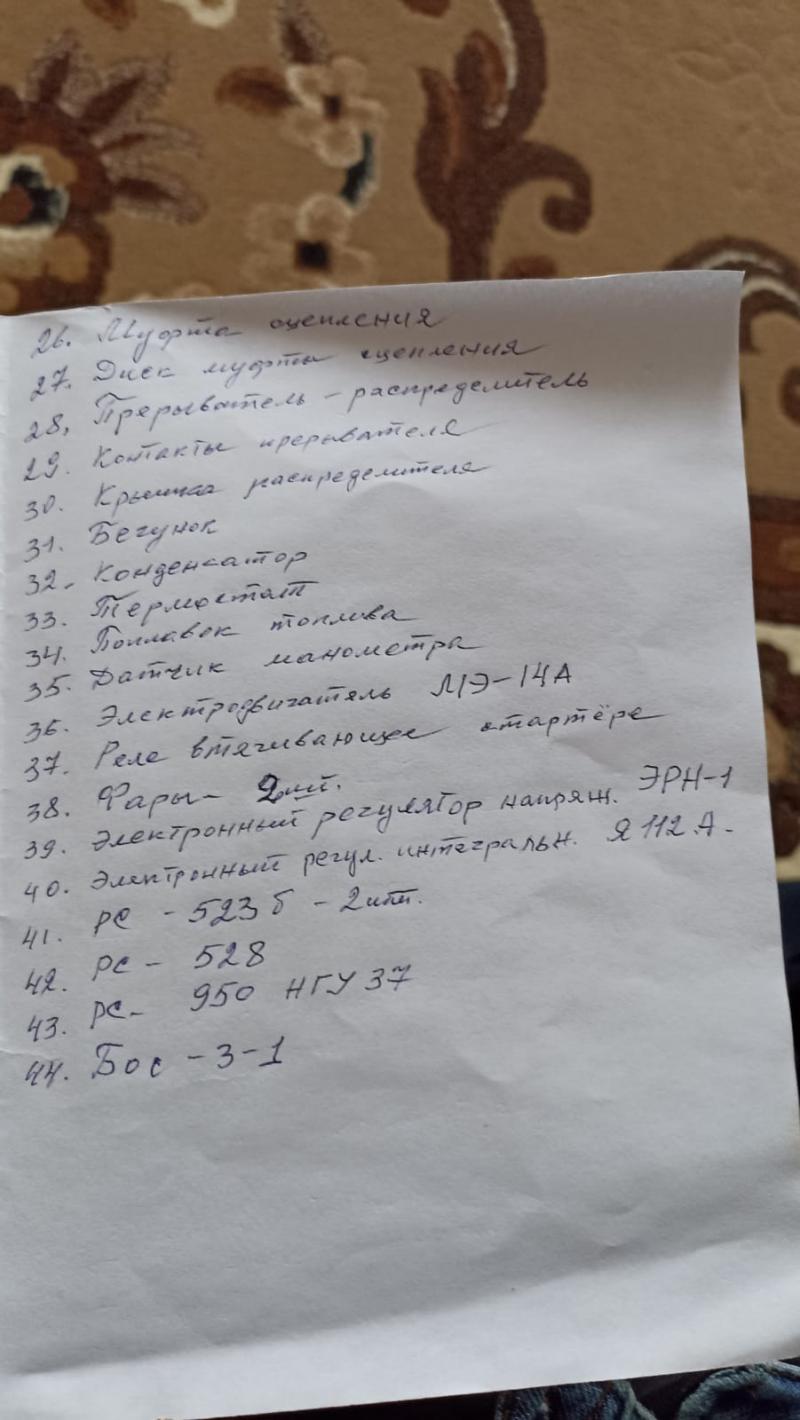 26. Муфта сцепления
27. Диск муфты сцепления
28. Прерыватель - распределитель
29. Контакты прерывателя
30. Крышка распределителя
31. Бегунок
32. Конденсатор
33. Термостат
34. Поплавок топлива
35. Датчик манометра
36. Электродвигатель МЭ-14А
37. Реле втягивающее стартёре
38. Фары - 2шт.
39. Электронный регулятор напряж. ЭРН-1
40. Электронный регул. интегральн. Я 112 А.
41. РС - 523 б - 2шт.
42. РС - 528
43. РС - 950 НГУ 37
44. Бос - 3 - 1